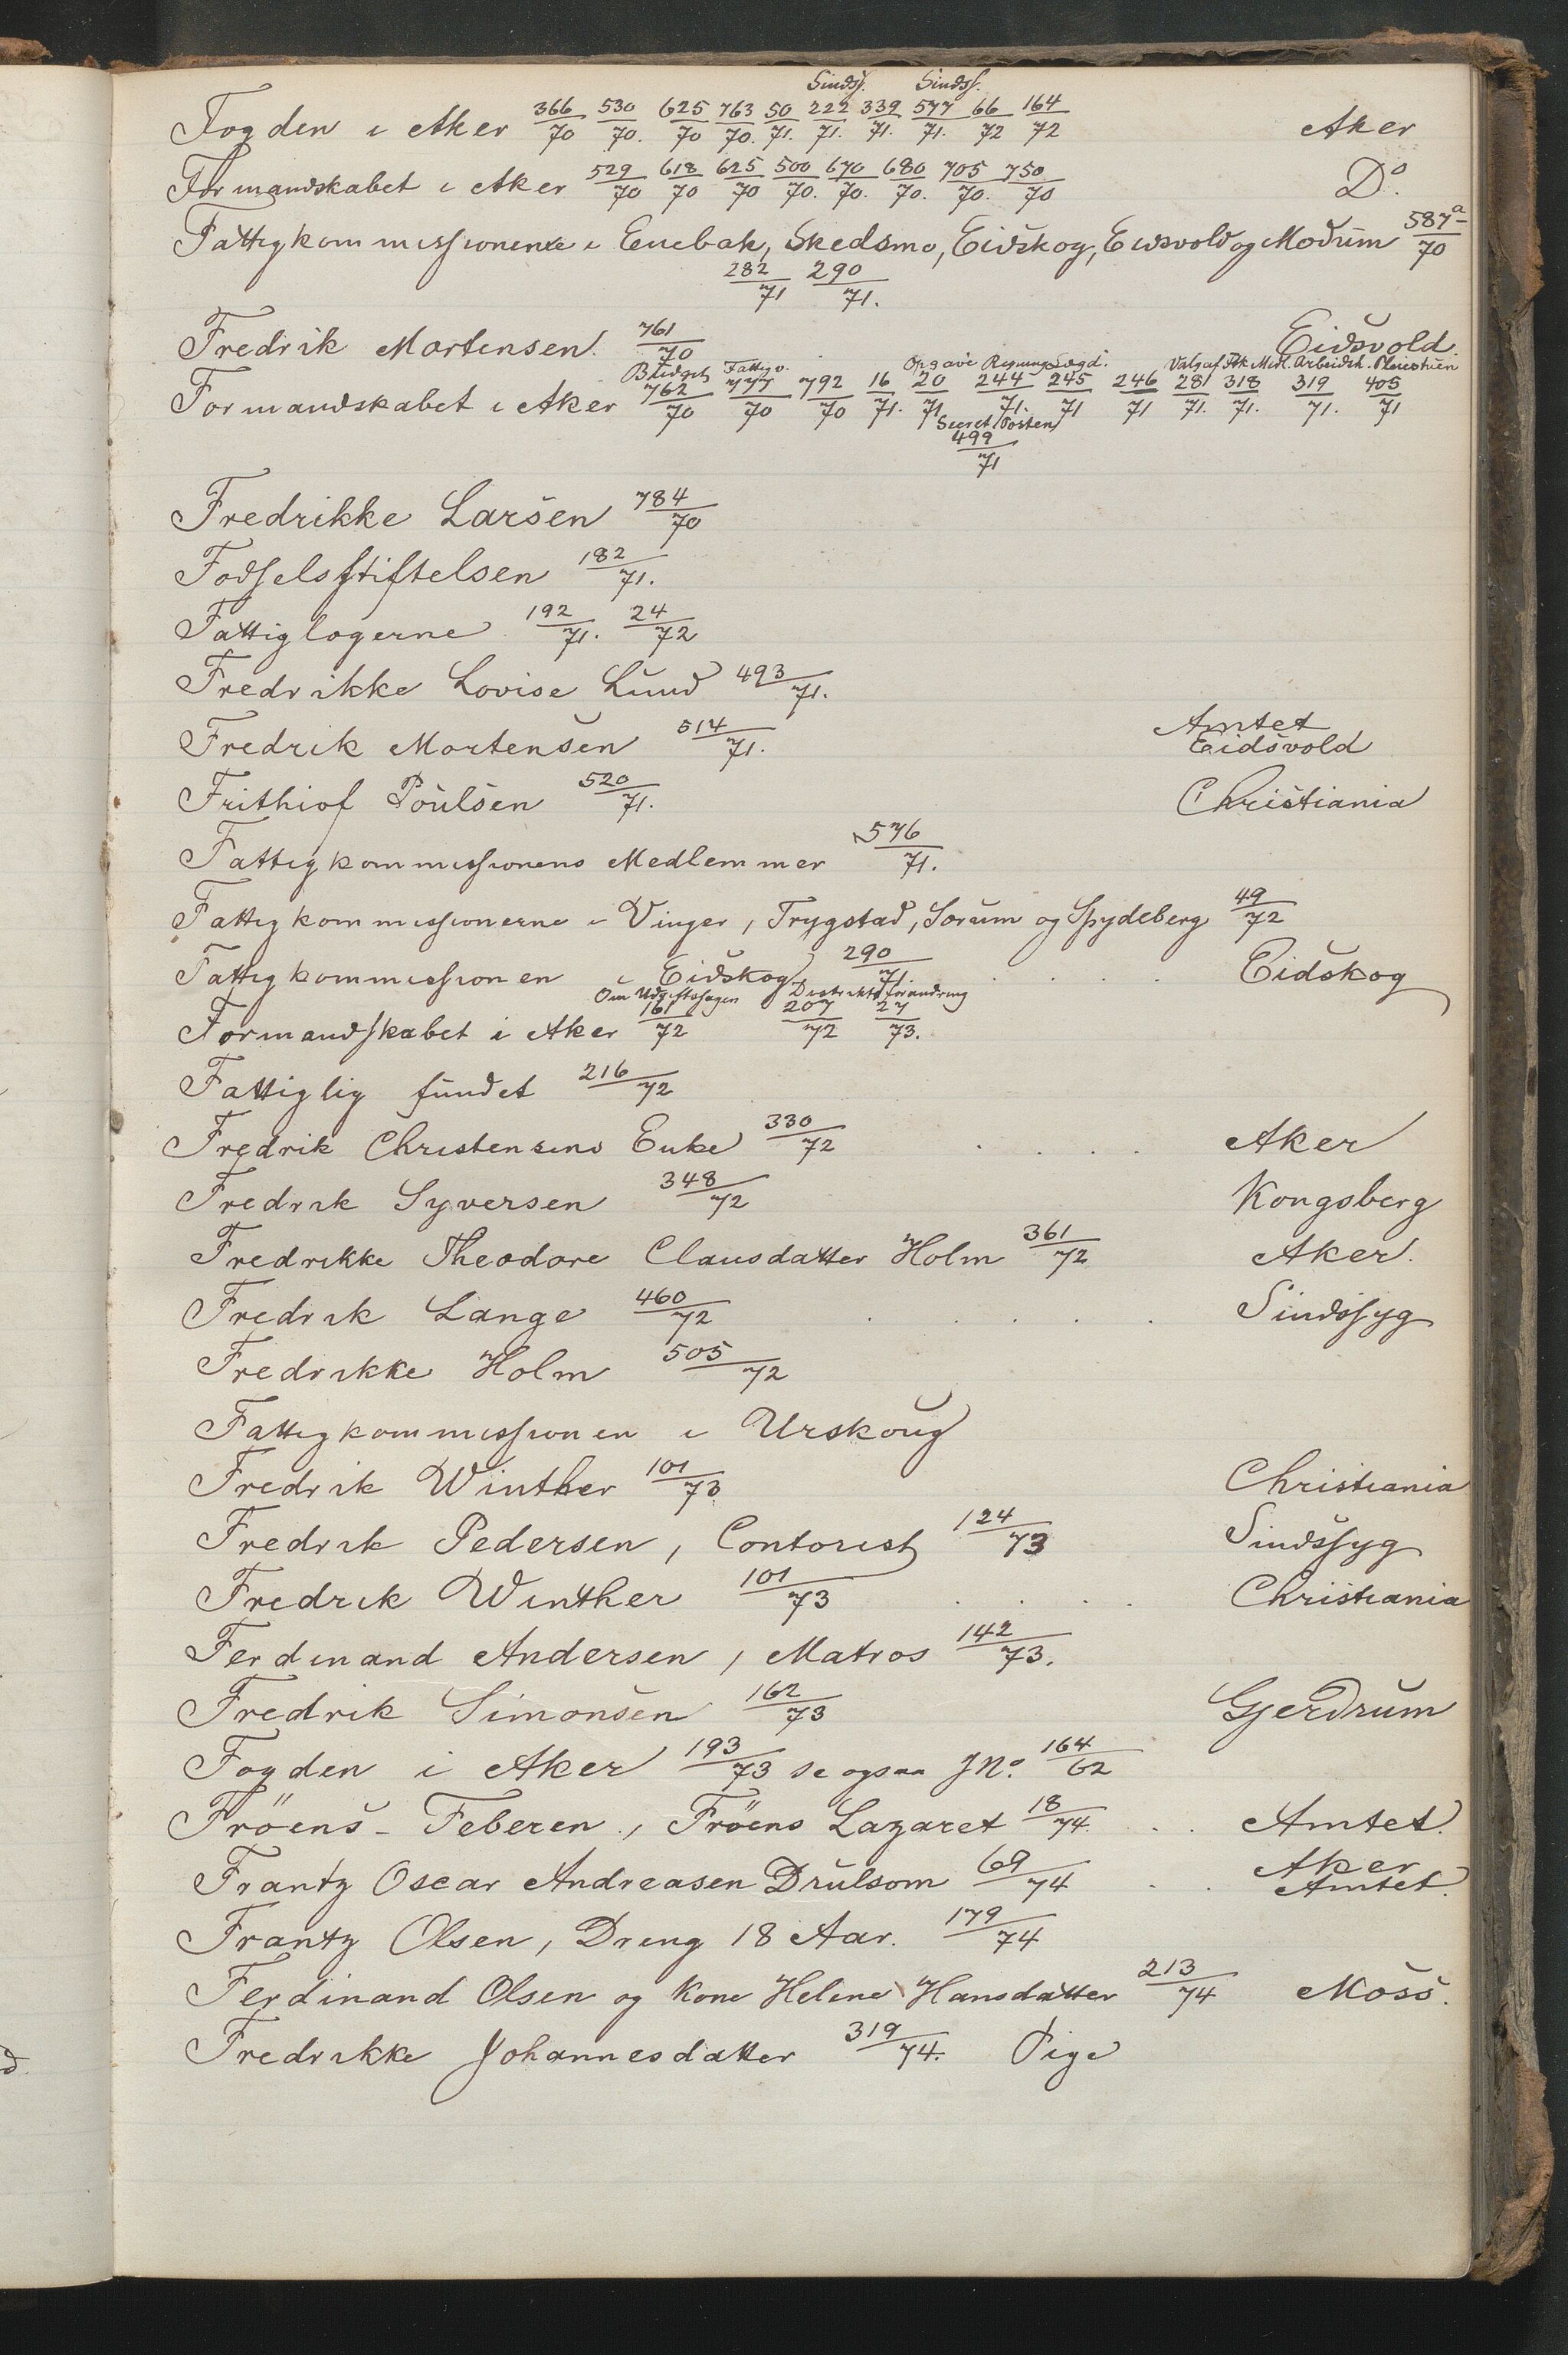 Sindss. Sindss.
Fogden i Aker 366/70 530/70. 625/70 763/70. 50/71. 222/71. 339/71. 577/71. 66/72 164/72 Aker
Formandskabet i Aker 529/70 618/70 625/70 500/70. 670/70. 680/70. 705/70. 750/70 Do.
Fattigkommissionerne i Enebak, Skedsmo, Eidskog, Eidsvold og Modum 587a/70
282/71 290/71.
Fredrik Mortensen. 761/70 Eidsvold
Budget Fattigv. Opgave Regning Lægd. Valg af Medl. Arbeidsh.
Formandskabet i Aker 762/70 777/70 792/70 16/71. 20/71 244/71. 245/71 246/71 281/71. 318/71. 319/71. 405/71
Secret Posten
499/71
Fredrikke Larsen 784/70
Fodselsstiftelsen 182/71.
Fattiglogerne 192/71. 24/72
Fredrikke Lovise Lund 493/71.
Amtet
Fredrik Mortensen 514/71. Eidsvold
Frithiof Poulsen 520/71. Christiania
Fattigkommissionens Medlemmer 576/71.
Fattigkommissionerne i Vinger, Trygstad, Sorum og Spydeberg 49/72
Fattigkommissionen i Eidskog 290/71. Eidskog
Om Udgiftssagen Distriktsforandring
Formandskabet i Aker 161/72 207/72 27/73.
Fattiglig fundet 216/72
Fredrik Christensens Enke 330/72 Aker
Fredrik Syversen 348/72 Kongsberg
Fredrikke Theodore Clausdatter Holm 361/72 Aker.
Fredrik Lange 460/72 Sindssyg
Fredrikke Holm 505/72
Fattigkommissionen i Urskoug
Fredrik Winther 101/73 Christiania
Fredrik Pedersen, Contorist 124/73 Sindssyg
Fredrik Winther 101/73 Christiania
Ferdinand Andersen, Matros 142/73.
Fredrik Simonsen 162/73 Gjerdrum
Fogden i Aker 193/73 se ogsaa JNo. 164/62
Fröens-Feberen, Fröens Lazaret 18/74. Amtet.
Aker
Frantz Oscar Andreasen Drulsom 69/74 Amtet.
Frantz Olsen, Dreng 18 Aar. 179/74
Ferdinand Olsen og Kone Helene Hansdatter 213/74 Moss.
Fredrikke Johannesdatter 319/74. Pige